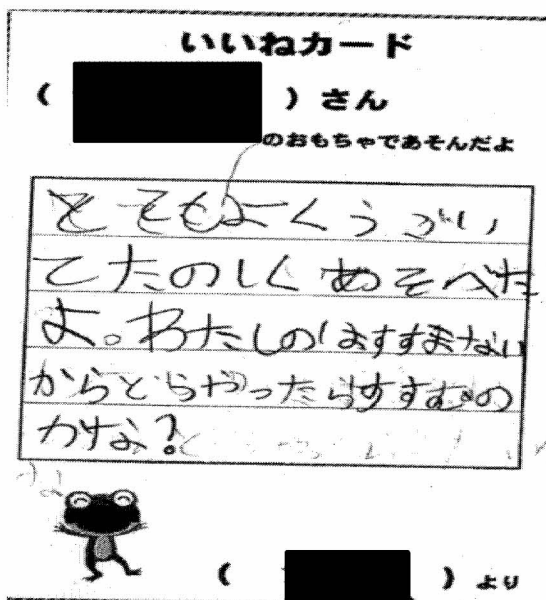 いいねカード
( ) さん
のおもちゃであそんだよ
とてもよくうごい
てたのしくあそべた
よ。わたしのはすすまない
からどうやったらすすむの
かな?
( ) より